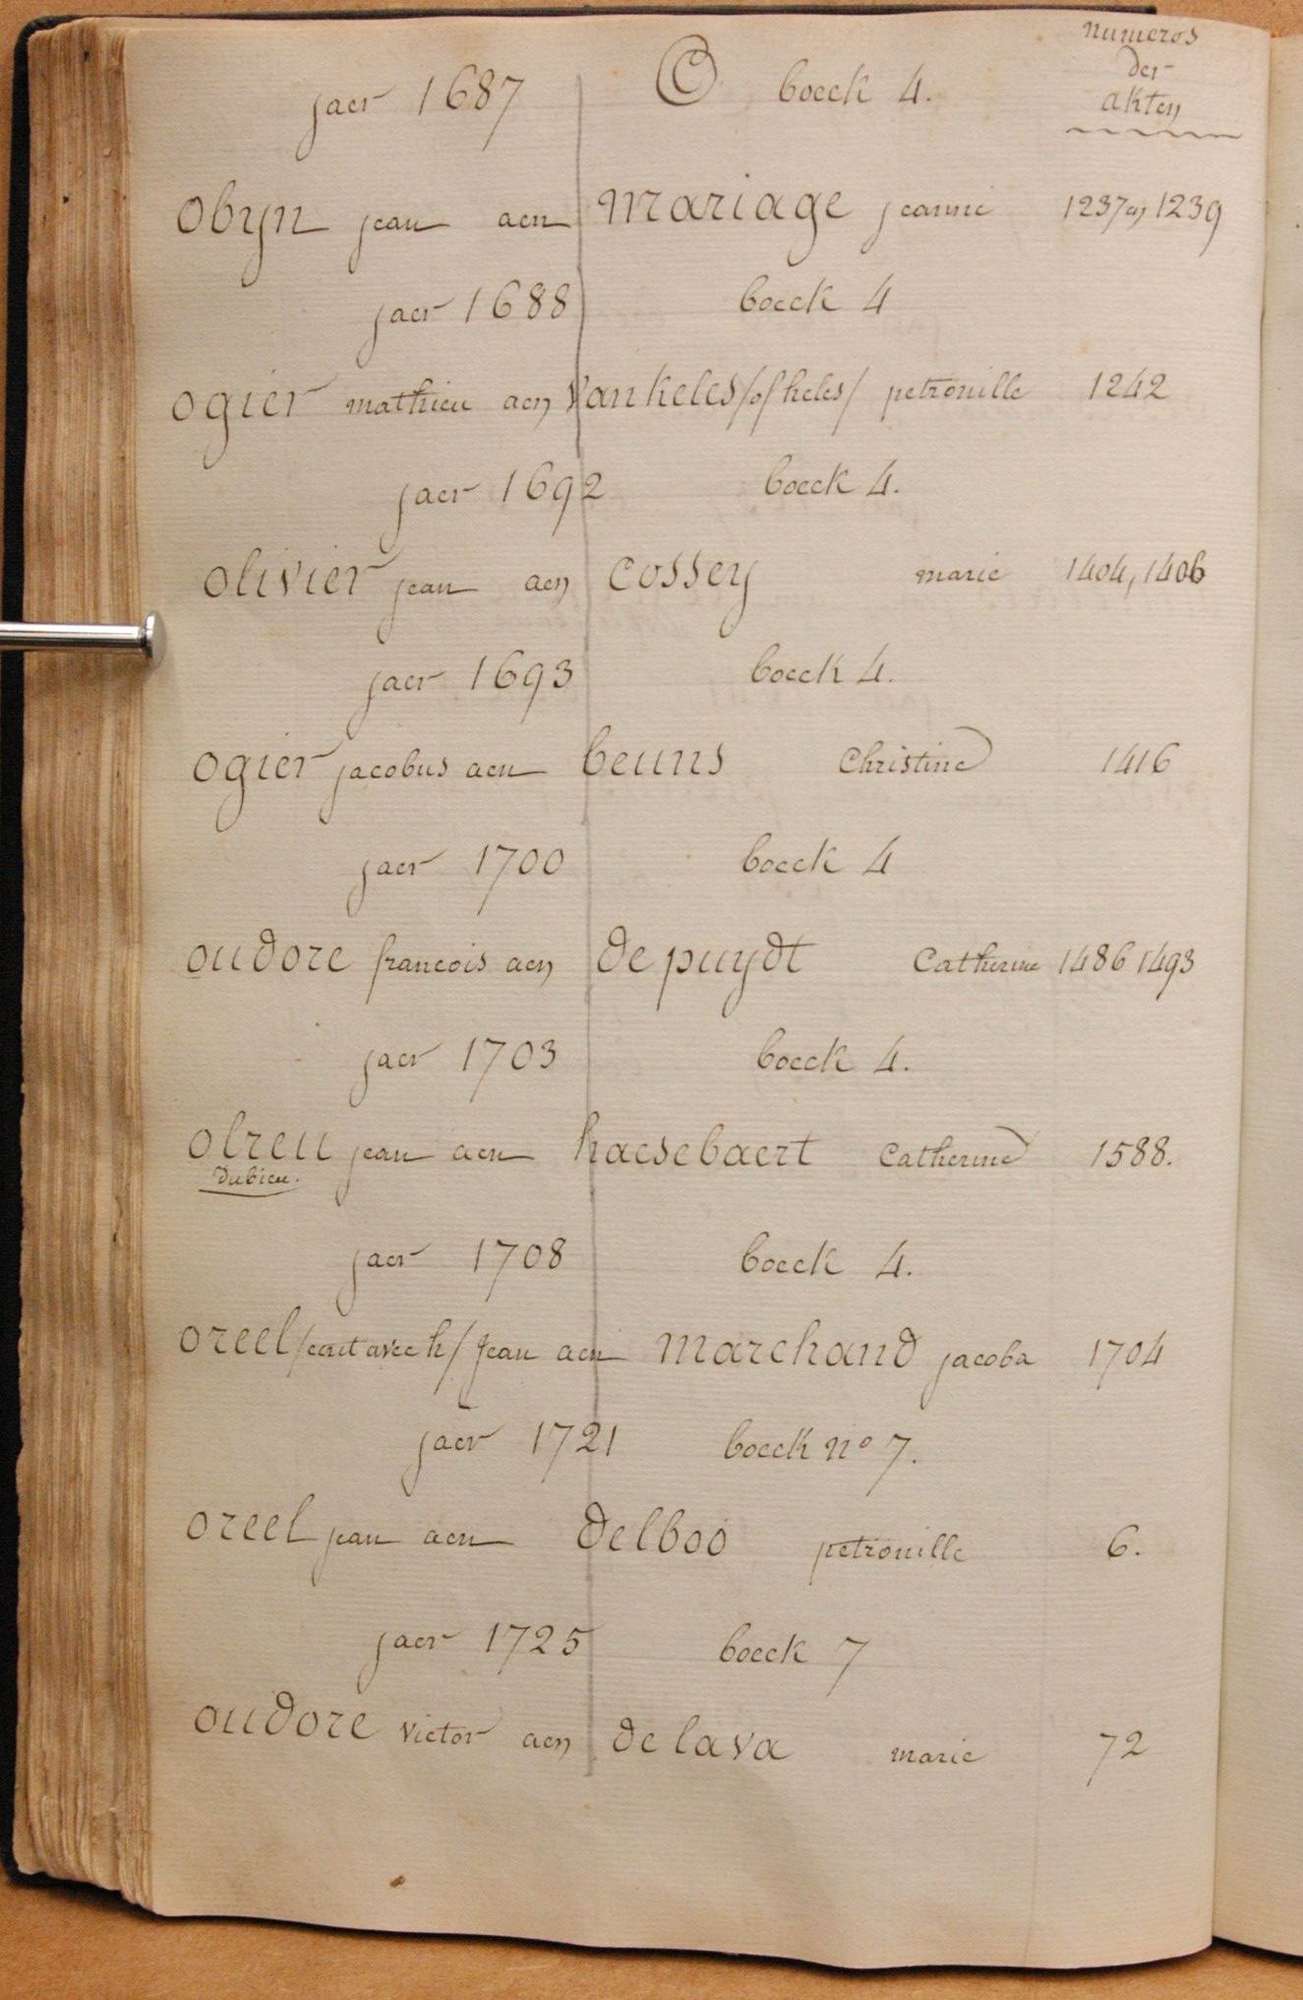 numeros
der
akten
jaer 1687 O boeck 4.
obyn jean aen mariage jeanne 1237 en 1239
jaer 1688 boeck 4
ogier mathieu aen vankeles /of keles/ petronille 1242
jaer 1692 boeck 4.
olivier jean aen cossey marie 1404, 1406
jaer 1693 boeck 4.
ogier jacobus aen beuns Christine 1416
jaer 1700 boeck 4
oudore francois aen de puydt Catherine 1486 1493
jaer 1703 boeck 4.
olreu jean aen haesebaert Catherine 1588.
dubieu.
jaer 1708 boeck 4.
oreel /ecrit avec h/ Jean aen marchand jacoba 1704
jaer 1721 boeck nº 7.
oreel jean aen delboo petronille 6.
jaer 1725 boeck 7
oudore victor aen de lava marie 72